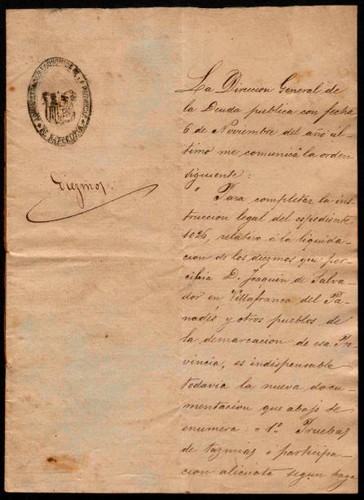 DE BARCELONA
Diezmos.
La Direccion General de
la Deuda publica con fecha
6 de Noviembre del año ul
timo me comunica la orden
siguiente:
"Para completar la ins
truccion legal del espediente
1024, relativo á la liquida
cion de los diezmos que per
cibia D. Joaquin de Salva
dor en Villafranca del Pa
nadés y otros pueblos de
la demarcacion de esa Pro
vincia, es indispensable
todavia la nueva docu
mentacion que abajo se
enumera: 1º Pruebas
de tazmias ó participa
cion alicuota segun haya